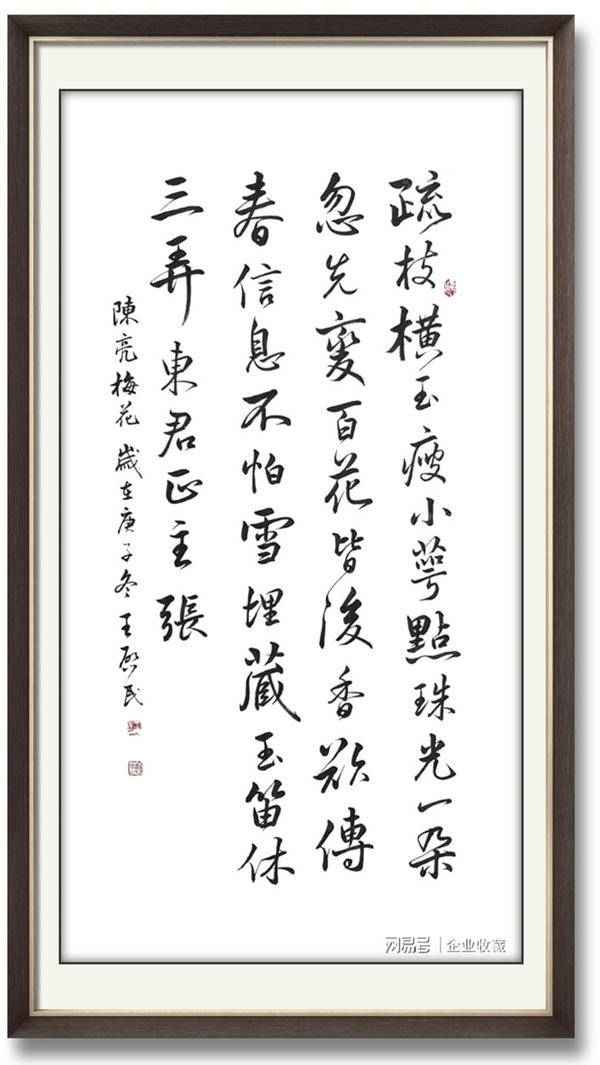 疏枝橫玉瘦小萼點珠光一朵
忽先變百花皆後香欲傳
春信息不怕雪埋藏玉笛休
三弄東君正主張
陳亮梅花 歲在庚子冬 王啟民
网易号 | 企业收藏